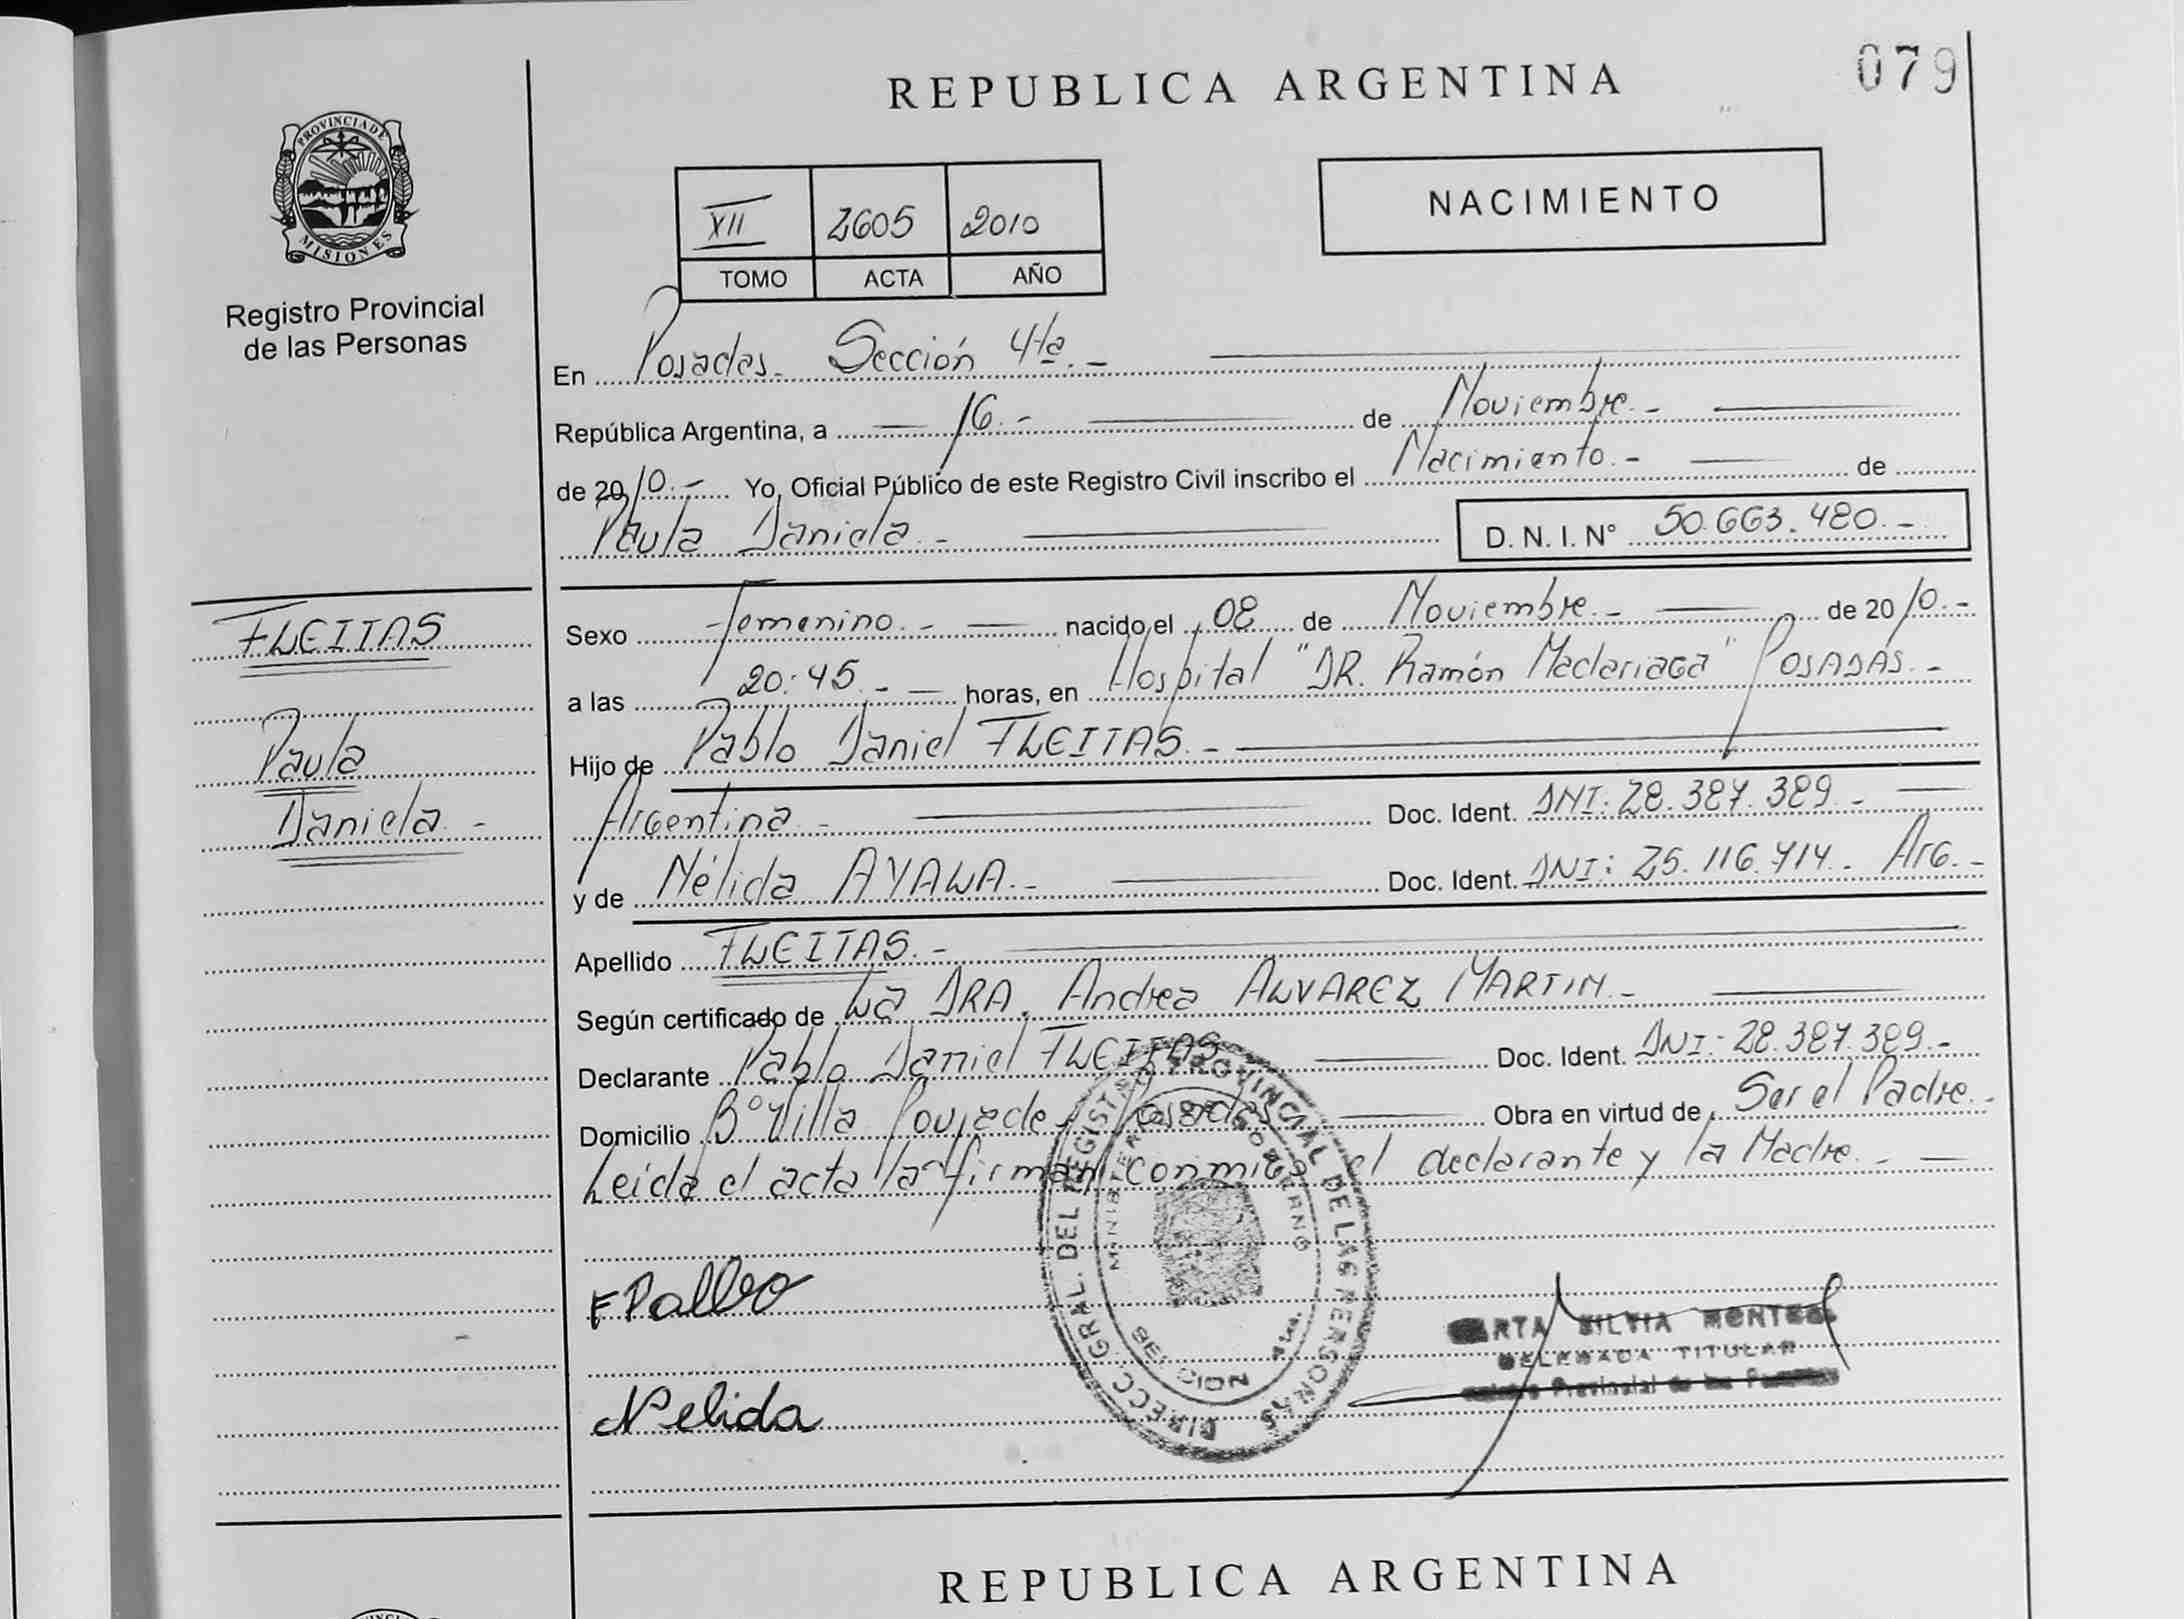 REPUBLICA ARGENTINA
079
PROVINCIA DE MISIONES
Registro Provincial
de las Personas
XII 2605 2010
TOMO ACTA AÑO
NACIMIENTO
En Posadas. Sección 4ta.-
República Argentina, a 16.- de Noviembre.-
de 2010.- Yo, Oficial Público de este Registro Civil inscribo el Nacimiento.- de
Paula Daniela.- D. N. I. Nº 50.663.480.-
FLEITAS
Paula
Daniela.-
Sexo Femenino.- nacido el 08 de Noviembre.- de 2010.-
a las 20:45.- horas, en Hospital "DR. Ramón Madariaga" POSADAS.-
Hijo de Pablo Daniel FLEITAS.-
Argentina.- Doc. Ident. DNI: 28.387.389.-
y de Nélida AYALA.- Doc. Ident. DNI: 25.116.914.- Arg.-
Apellido FLEITAS.-
Según certificado de La DRA. Andrea ALVAREZ MARTIN.-
Declarante Pablo Daniel FLEITAS Doc. Ident. DNI: 28.387.389.-
Domicilio Bº Villa Posadas Obra en virtud de Ser el Padre.-
Leida el acta la firman conmigo el declarante y la Madre.-
F Pablo
Nelida
DIRECC. GRAL. DEL REGISTRO PROVINCIAL DE LAS PERSONAS
MINISTERIO DE GOBIERNO
SECCION 4ta.
MARTA SILVIA
DELEGADA TITULAR
Registro Provincial de las Personas
REPUBLICA ARGENTINA